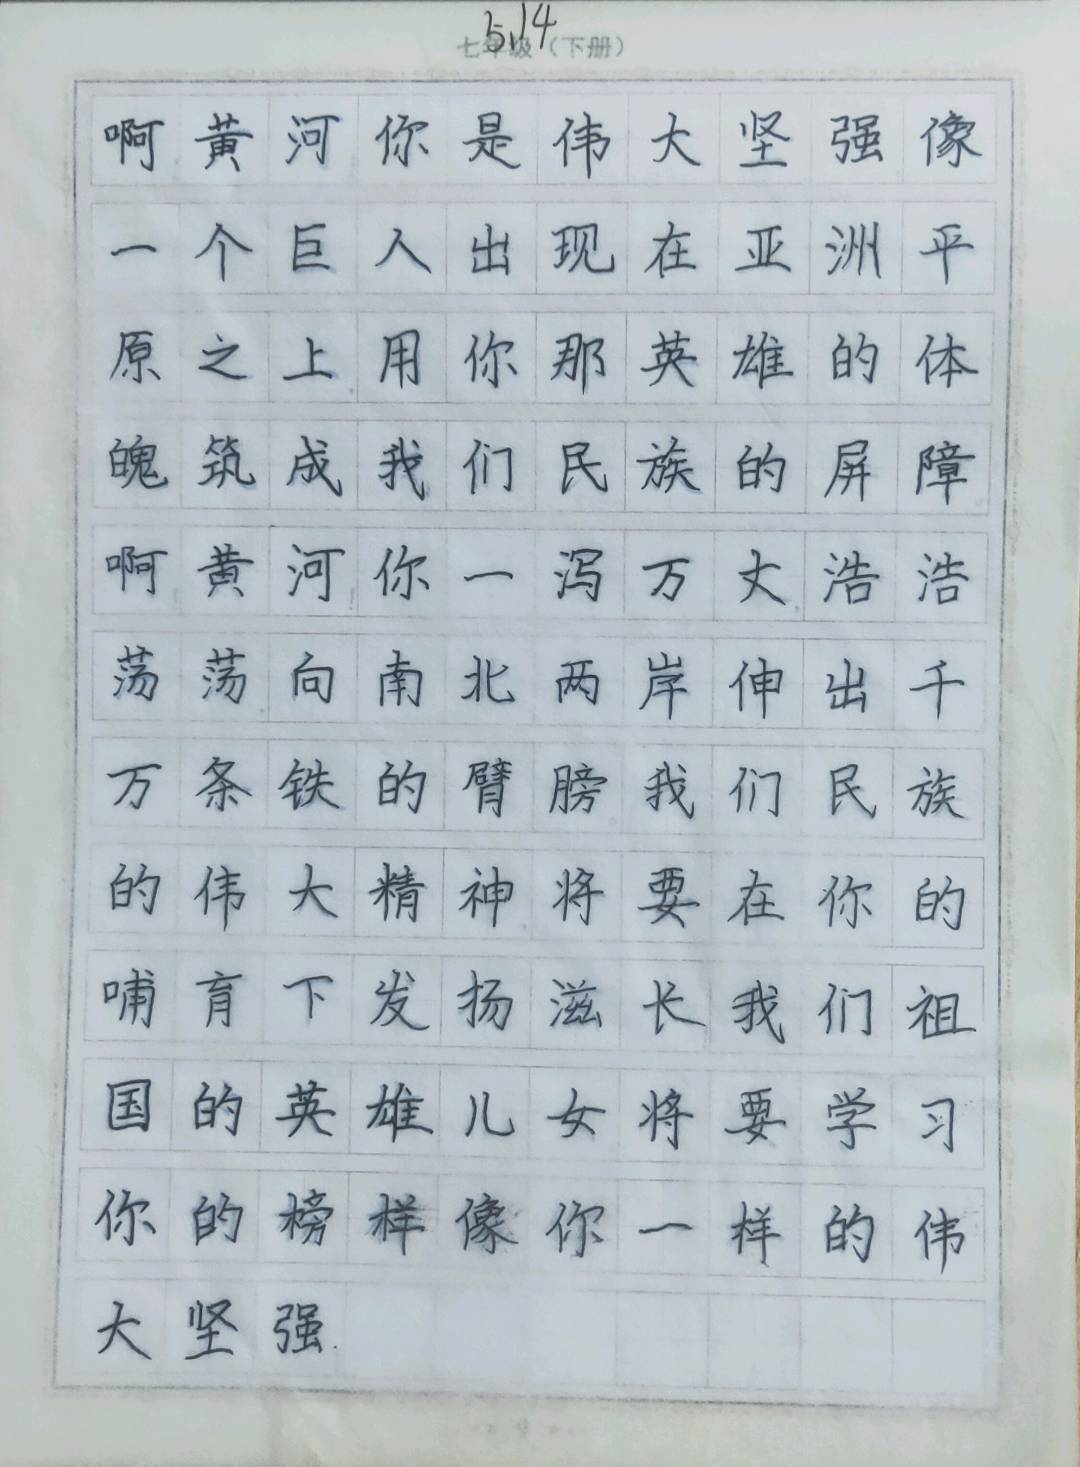 5.14
七年级（下册）
啊黄河你是伟大坚强像
一个巨人出现在亚洲平
原之上用你那英雄的体
魄筑成我们民族的屏障
啊黄河你一泻万丈浩浩
荡荡向南北两岸伸出千
万条铁的臂膀我们民族
的伟大精神将要在你的
哺育下发扬滋长我们祖
国的英雄儿女将要学习
你的榜样像你一样的伟
大坚强.